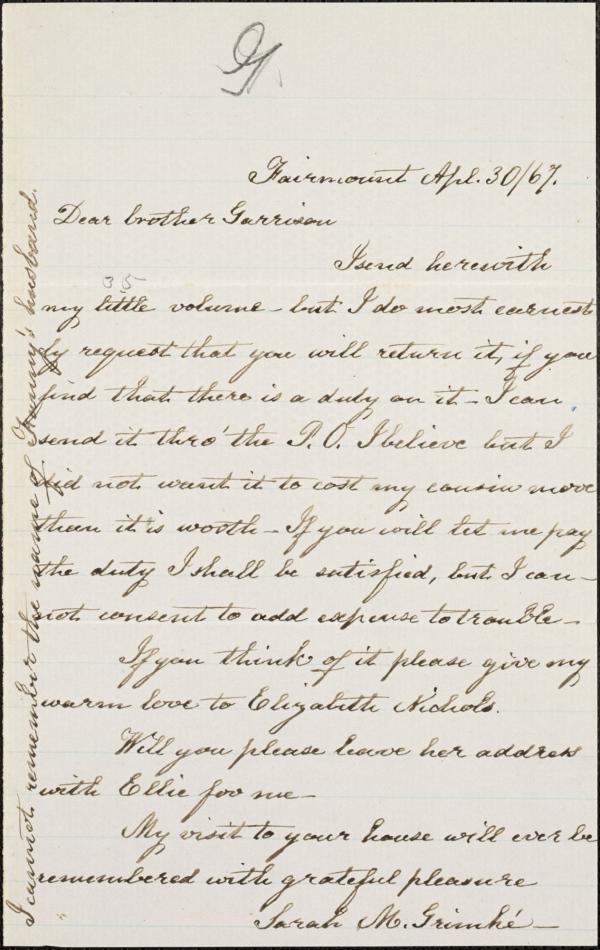 G.
Fairmount Apl. 30/67.
Dear brother Garrison
I send herewith
35
my little volume - but I do most earnest
ly request that you will return it, if you
find that there is a duty on it - I can
send it thro' the P.O. I believe but I
did not want it to cost my cousin more
than it is worth - If you will let me pay
the duty I shall be satisfied, but I can-
not consent to add expense to trouble -
If you think of it please give my
warm love to Elizabeth Nichols.
Will you please leave her address
with Ellie for me -
My visit to your house will ever be
remembered with grateful pleasure
Sarah M. Grimké -
I cannot remember the name of Fanny's husband.